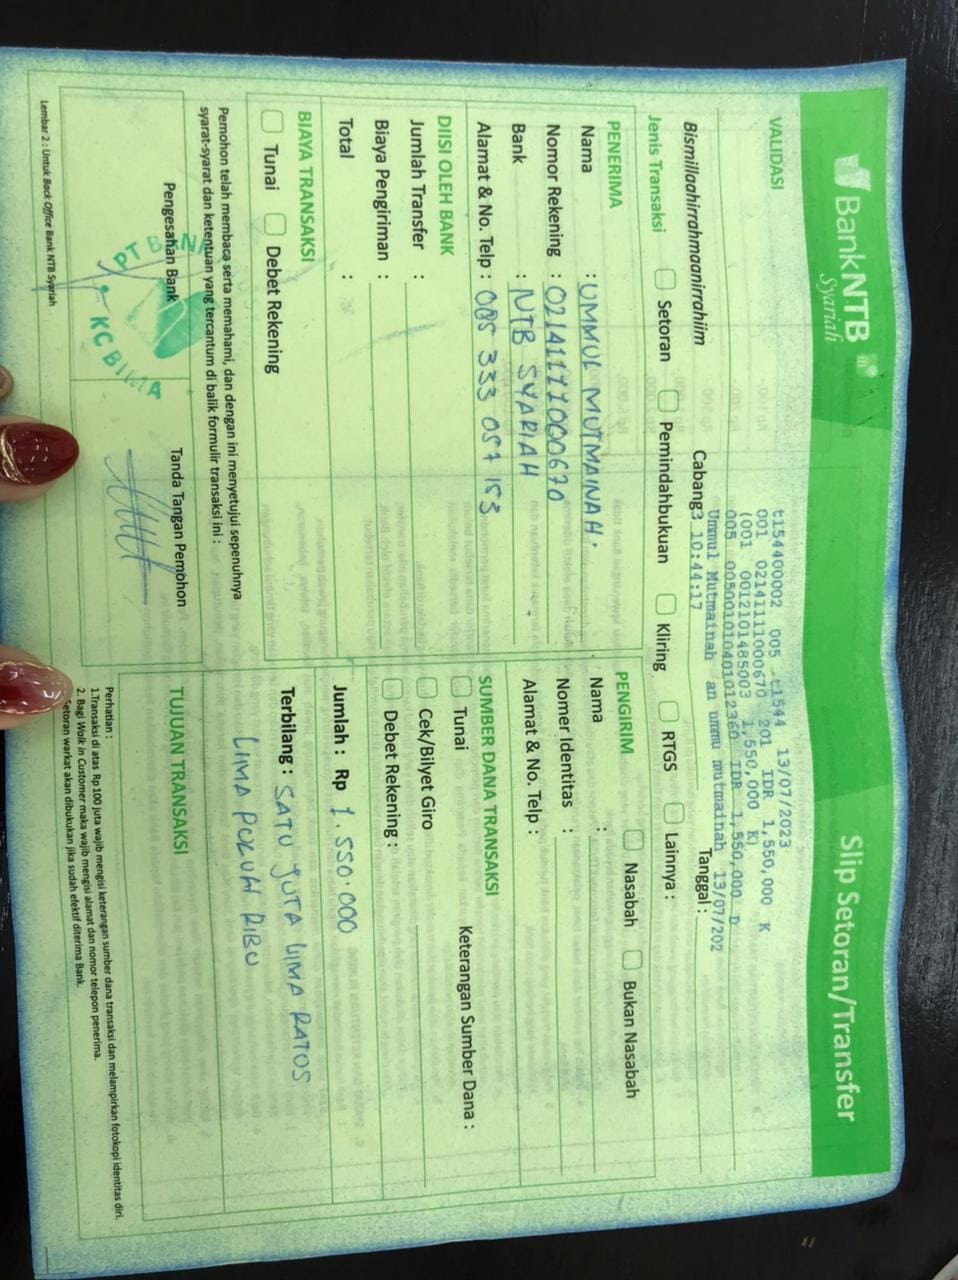 BankNTB
Syariah
Slip Setoran/Transfer
VALIDASI
t154400002 005 t1544 13/07/2023
001 0214111000670 201 IDR 1,550,000 K
(001 0012101485003 1,550,000 K)
005 005001010401012360 IDR 1,550,000 D
Ummul Mutmainah an ummu mutmainah 13/07/202
3 10:44:17
Bismillaahirrahmaanirrahiim
Cabang
Tanggal :
Jenis Transaksi
Setoran
Pemindahbukuan
Kliring
RTGS
Lainnya :
PENERIMA
Nama : UMMUL MUTMAINAH.
Nomor Rekening : 0214111000670
Bank : NTB SYARIAH
Alamat & No. Telp : 085 333 057 153
PENGIRIM
Nasabah
Bukan Nasabah
Nama :
Nomer Identitas :
Alamat & No. Telp :
DIISI OLEH BANK
Jumlah Transfer :
Biaya Pengiriman :
Total :
SUMBER DANA TRANSAKSI
Keterangan Sumber Dana :
Tunai
Cek/Bilyet Giro
Debet Rekening :
BIAYA TRANSAKSI
Tunai
Debet Rekening
Jumlah : Rp 1.550.000
Terbilang : SATU JUTA LIMA RATOS
LIMA PULUH RIBU
Pemohon telah membaca serta memahami, dan dengan ini menyetujui sepenuhnya
syarat-syarat dan ketentuan yang tercantum di balik formulir transaksi ini :
Pengesahan Bank
Tanda Tangan Pemohon
PT BANK
KC BIMA
TUJUAN TRANSAKSI
Perhatian :
1.Transaksi di atas Rp 100 juta wajib mengisi keterangan sumber dana transaksi dan melampirkan fotokopi identitas diri.
2. Bagi Walk in Customer maka wajib mengisi alamat dan nomor telepon penerima.
Setoran warkat akan dibukukan jika sudah efektif diterima Bank.
Lembar 2 : Untuk Back Office Bank NTB Syariah